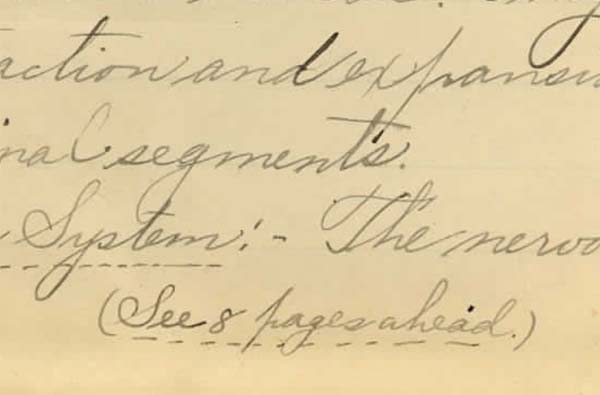 action and expansi
nal segments.
System:- The nervo
(See 8 pages ahead.)